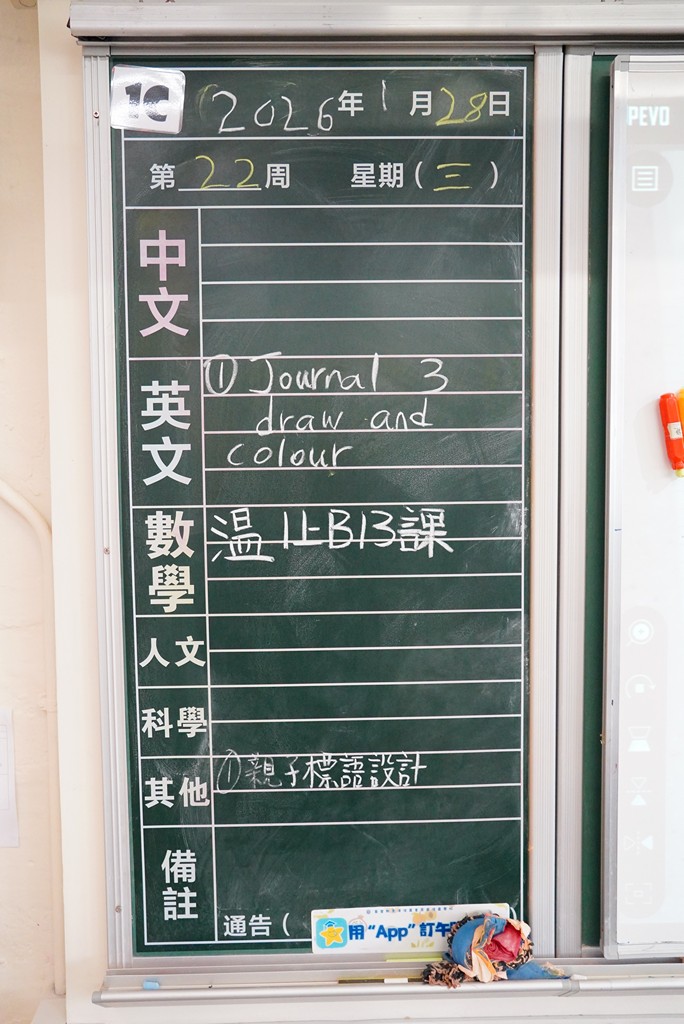 1C
2026年1月28日
第22周 星期(三)
中文
英文
① Journal 3
draw and
colour
數學
溫11-B13課
人文
科學
其他
①親子標語設計
備註
通告(
用“App”訂午
PEVO